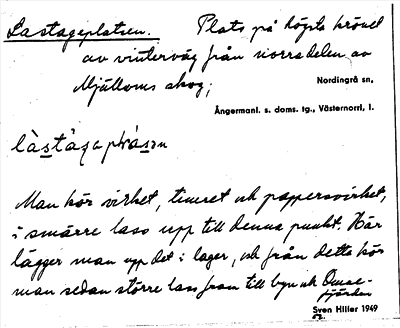 Lastageplatsen. Plats på högsta krönet
av vinterväg från norra delen av
Mjälloms skog;
Nordingrå sn,
Ångermanl. s. doms. tg., Västernorrl. l.
Man kör virket, timret och pappersvirket,
i smärre lass upp till denna punkt. Här
lägger man upp det i lager, och från detta kör
man sedan större lass fram till byn och Omne-
fjärden
Sven Hiller 1949